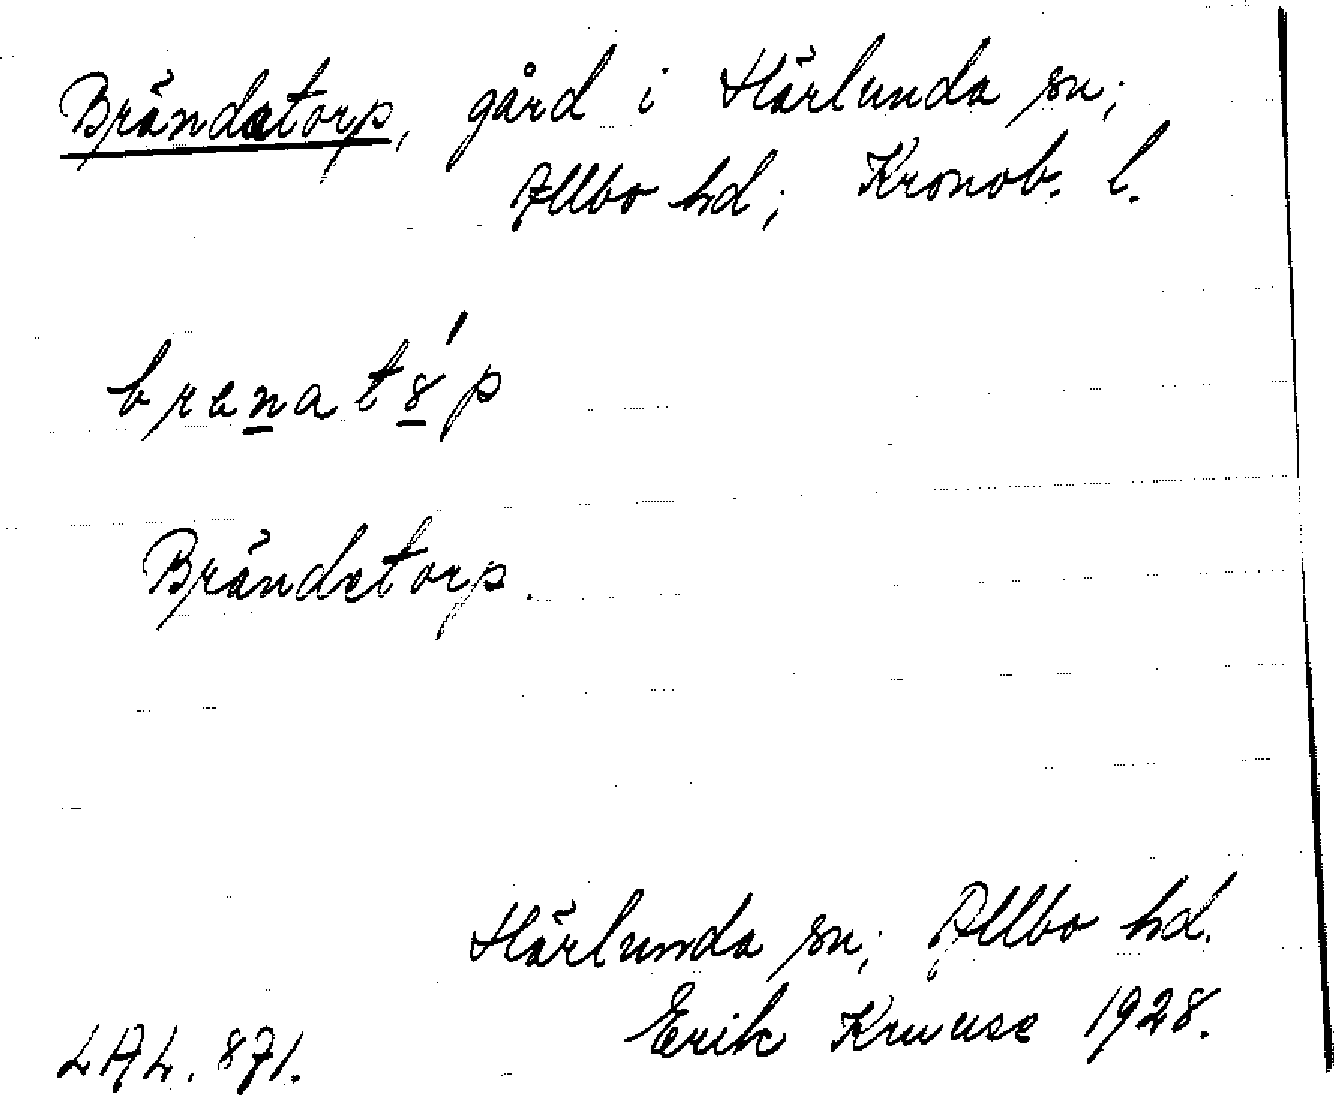 Brändetorp, gård i Härlunda sn;
Allbo hd; Kronob. l.
brenat8́p
Brändetorp.
Härlunda sn; Allbo hd.
Erik Kruuse 1928.
LAL. 871.